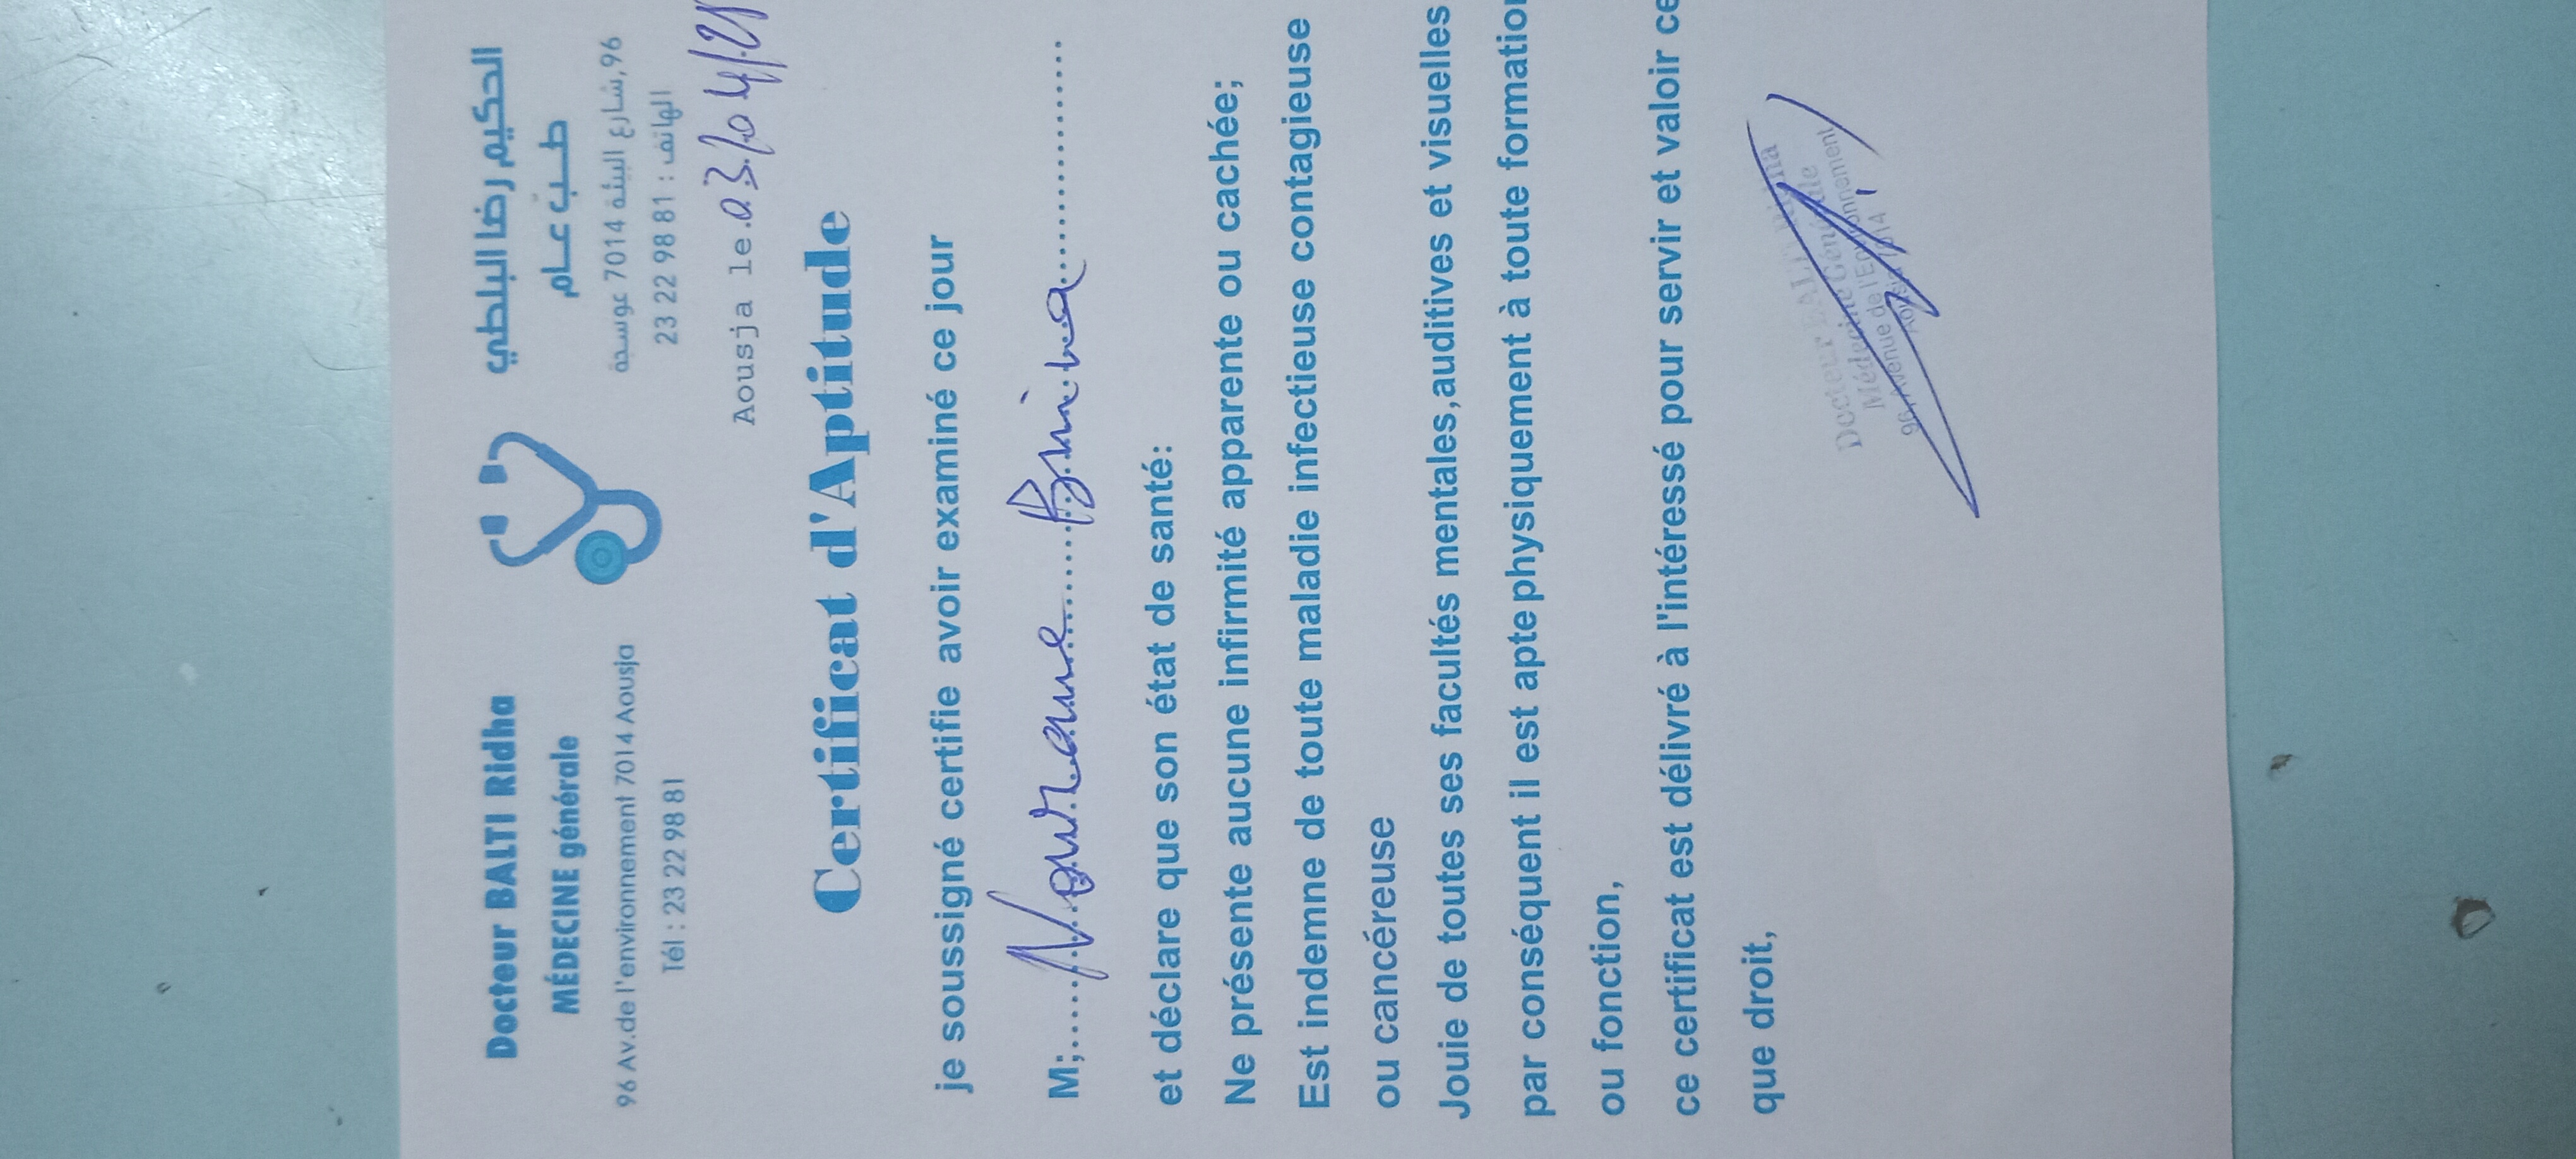 Docteur BALTI Ridha
MÉDECINE générale
96 Av.de l'environnement 7014 Aousja
Tél : 23 22 98 81
الحكيم رضا البلطي
طب عام
96,شارع البيئة 7014 عوسجة
الهاتف : 23 22 98 81
Aousja le.03/04/
Certificat d'Aptitude
je soussigné certifie avoir examiné ce jour
M;..... Nourane ..... Amina ..................
et déclare que son état de santé:
Ne présente aucune infirmité apparente ou cachée;
Est indemne de toute maladie infectieuse contagieuse
ou cancéreuse
Jouie de toutes ses facultés mentales,auditives et visuelles
par conséquent il est apte physiquement à toute formation
ou fonction,
ce certificat est délivré à l'intéressé pour servir et valoir ce
que droit,
Docteur BALTI Ridha
Médecine Générale
96, Avenue de l'Environnement
Aousja 7014